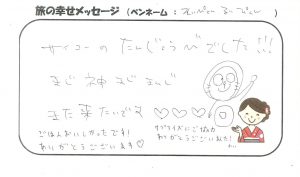 旅の幸せメッセージ (ペンネーム :
サイコーの たんじょうびでした!!!
まじ 神 まじ まんじ
また来たいです ♡♡♡
ごはんおいしかったです!
ありがとうございます♡
サプライズにご協力
ありがとうございました!